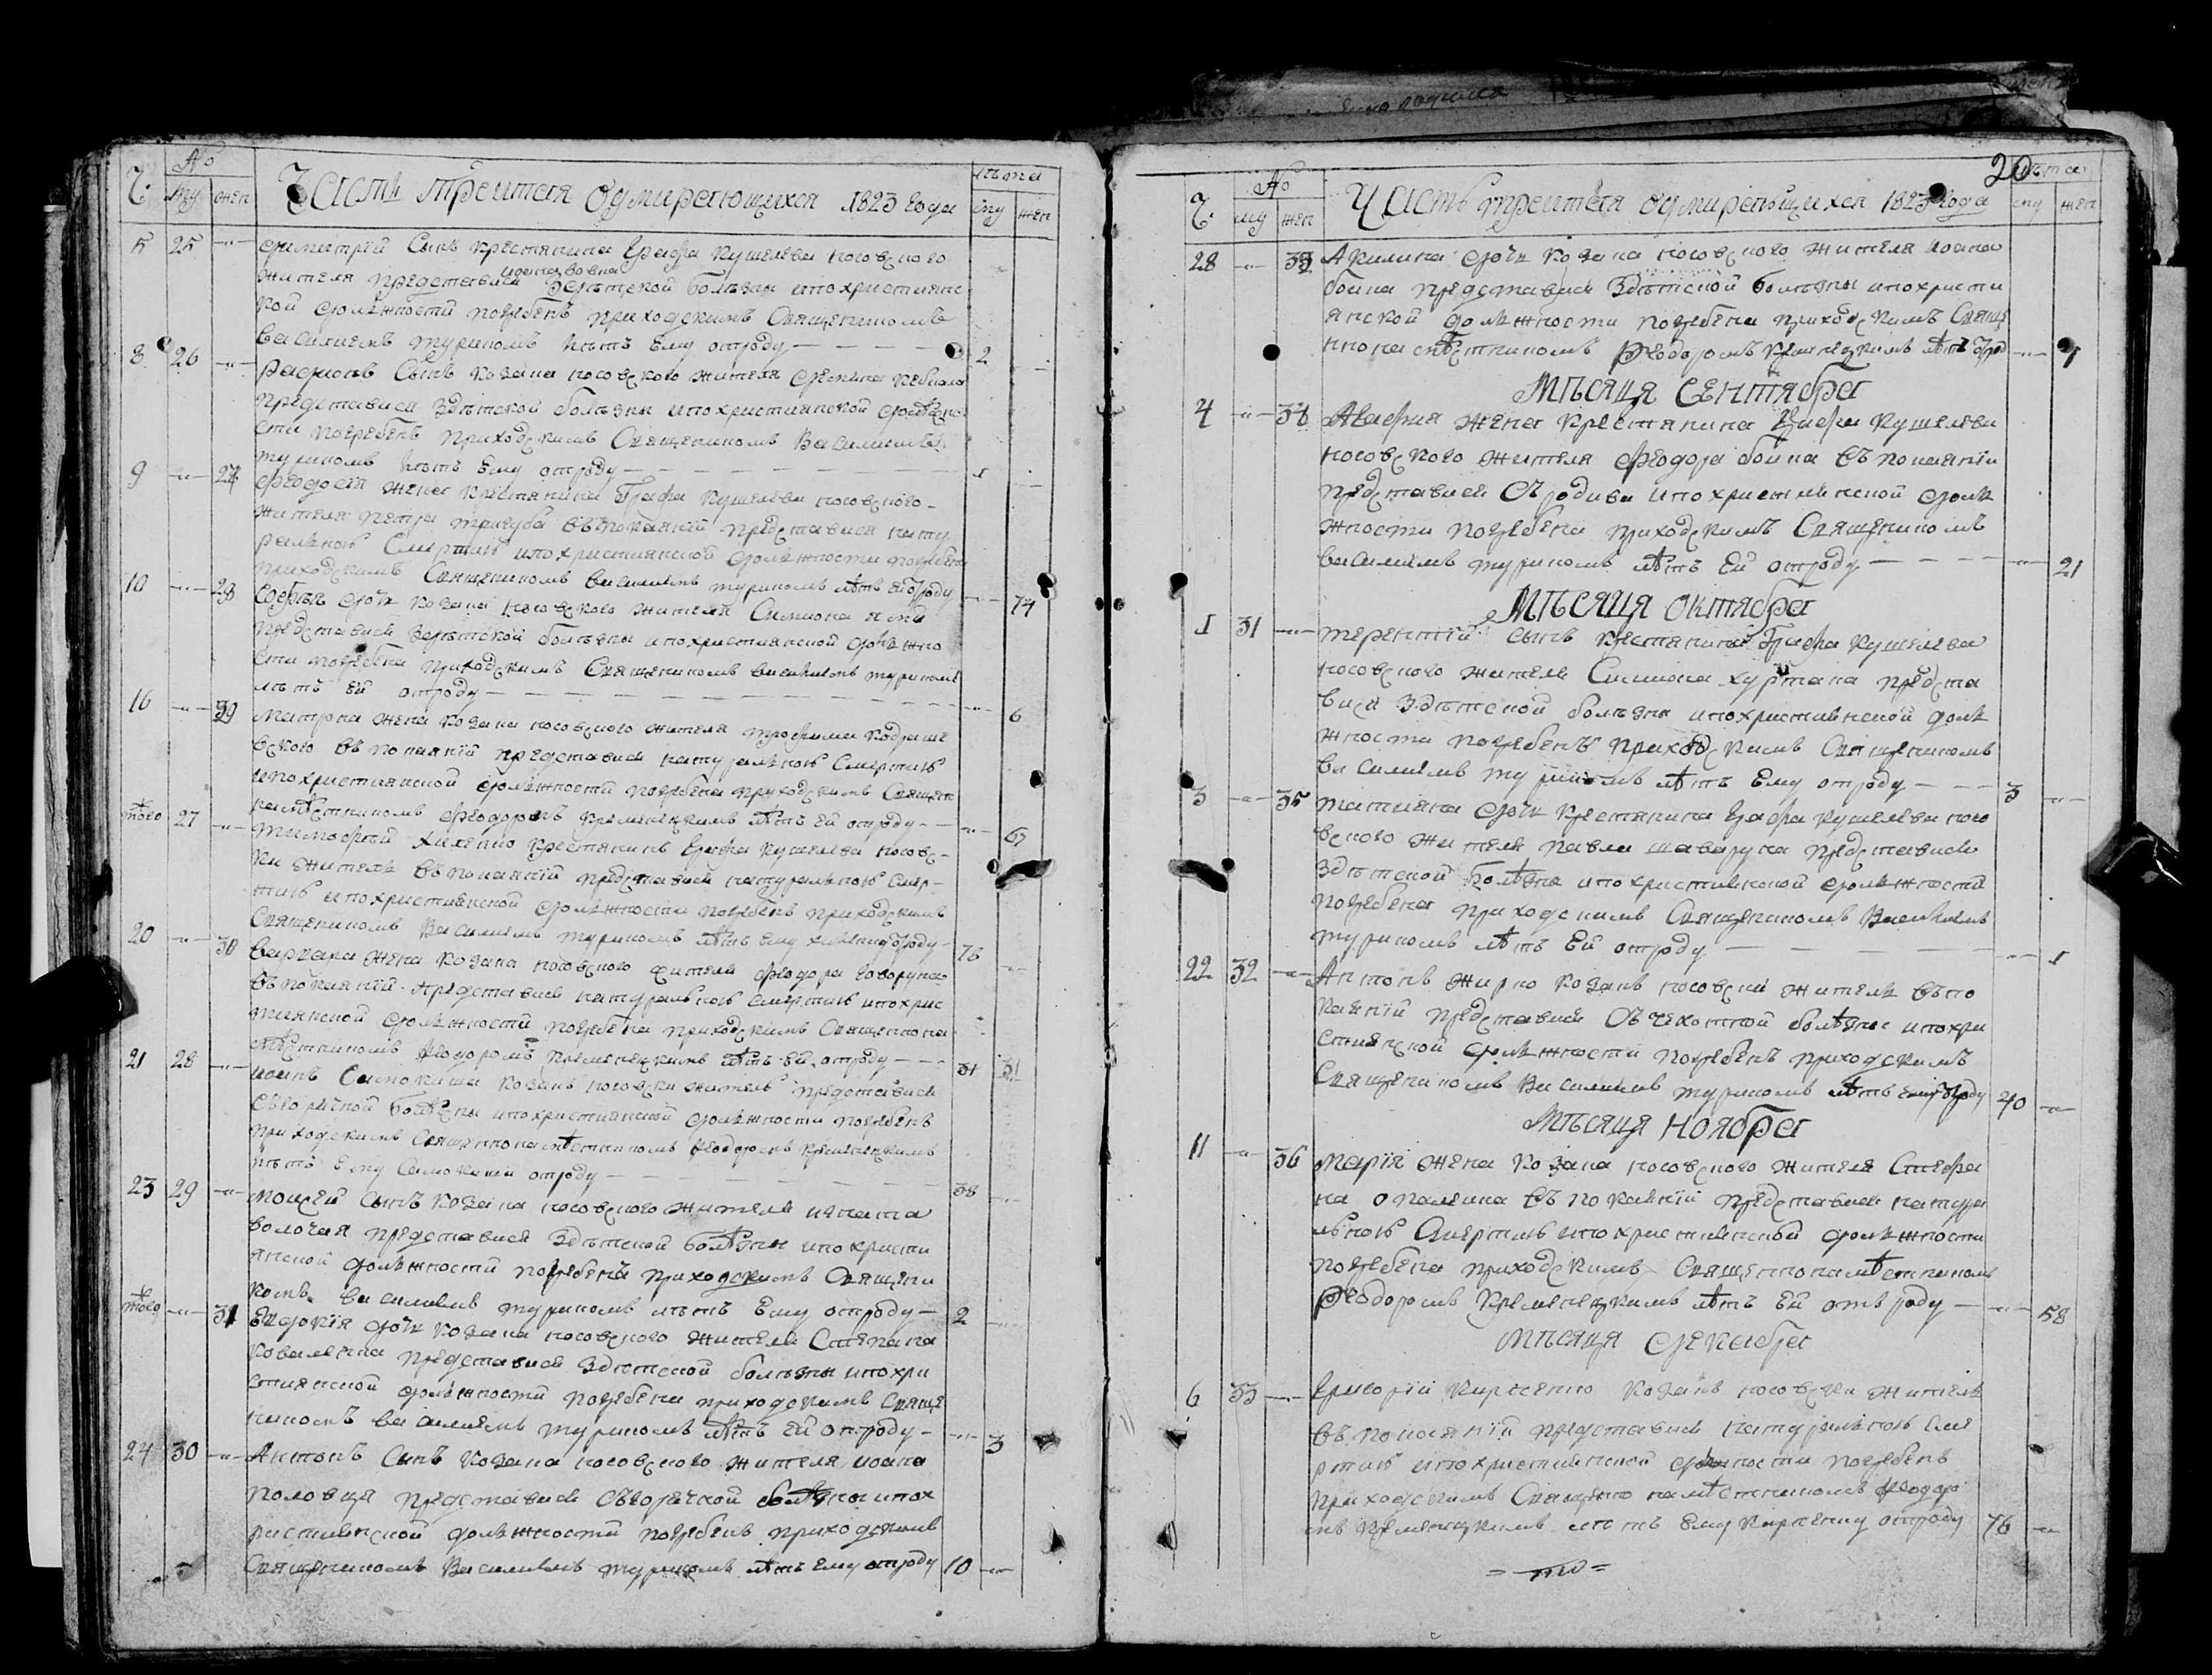 Ч. № му жен Часть третая оумирающихся 1823 года лѣта му жен
5 25 Димитрий Сынъ крестянина Графа Кушелева носовского
жителя представися здѣтской болѣзни ипохристиянс
кой должностй погребенъ приходскимъ Священикомъ
василиемъ туриномъ лѣтъ Ему отроду 2
8 26 Сынъ козака носовского жителя
представися здѣтской болѣзны ипохристиянской должно
сти погребенъ приходскимъ Священикомъ Василиемъ
туриномъ лѣтъ ему отроду 1
9 27 Феодосїя жена крестянина Графа Кушелева носовского
жителя петра тригуба въпокаянїй представися нату
ралною Смертию ипохристиянской должности погребена
приходскимъ Священикомъ василиемъ туриномъ лѣтъ ей отроду 74
10 28 дочь козака носовского жителя Симиона
представися здѣтской болѣзны ипохристиянской должно
сти погребена приходскимъ Священикомъ василиемъ туриномъ
лѣтъ ей отроду 6
16 29 Матрона жена козака носовского жителя трофима
въ покаянїй представися натуралною Смертию
ипохристиянской должностй погребена приходскимъ Священо
намѣстникомъ Феодоромъ кременецкимъ лѣтъ ей отроду
того 27 тимофѣй хиженко крестянинъ Графа Кушелева носовс
ки житель въ покаянїй представися натуралною Смер
тию ипохристиянской должности погребенъ приходскимъ
Священикомъ Василиемъ туриномъ лѣтъ ему отроду 76
20 30 варвара жена козака носовского жителя Феодора говоруна
въ покаянїй представися натуралною смертию ипохрис
тиянской должностй погребена приходскимъ Священнона
мѣстникомъ Феодоромъ кременецкимъ лѣтъ ей отроду 31
21 28 иоанъ Самокиша козакъ носовски житель представися
зъгорячой болѣзны ипохристиянской должности погребенъ
приходскимъ Священнонамѣстникомъ Феодоромъ кременецкимъ
лѣтъ Ему Самокиши отроду 38
23 29 Моисей сынъ козака носовского жителя игната
волочая представися здѣтской болѣзны ипохристи
янской должностй погребенъ приходскимъ Священи
комъ василиемъ туриномъ лѣтъ Ему отроду 2
того 31 Евдокїя дочь козака носовского жителя Степана
коваленка представися здѣтской болѣзны ипохри
стиянской должностй погребена приходскимъ Свяще
никомъ василиемъ туриномъ лѣтъ Ей отроду 3
24 30 Антонъ Сынъ козака носовского жителя иоана
половця представися зъгорячкой болѣзны ипох
ристиянской должностй погребенъ приходскимъ
Священикомъ Василиемъ туриномъ лѣтъ ему отроду 10
20
Ч. № му жен Часть третая оумирающихся 1823 Года лѣта му жен
28 33 Акилина дочь козака носовского жителя иоана
бойка представися Здѣтской болѣзны ипохристи
янской должности погребена приходскимъ Свяще
ннонамѣстникомъ Феодоромъ кременецкимъ лѣтъ отрод
Мѣсяця Сентября
4 34 Агафия жена крестянина Графа Кушелева
носовского жителя Феодора бойка въ покаянїи
представися Съ родива ипохристиянской долж
жности погребена приходскимъ Священикомъ
василиемъ туриномъ лѣтъ Ей отроду 21
Мѣсяця Октября
1 31 терентїй сынъ крестянина Графа Кушелева
носовского жителя Симиона хуртана предста
вися здѣтской болѣзны ипохристиянской дол
жности погребенъ приходскимъ Священикомъ
василиемъ туриномъ лѣтъ Ему отроду 3
3 35 татияна дочь крестянина Графа Кушелева носо
вского жителя павла представися
здѣтской болѣзны ипохристиянской должностй
погребена приходскимъ Священикомъ Василиемъ
туриномъ лѣтъ Ей отроду 1
22 32 Антонъ жирко козакъ носовски житель въпо
каянїй представися Съ чехотной болѣзны ипохри
стиянской должностй погребенъ приходскимъ
Священикомъ Василиемъ туриномъ лѣтъ ему отроду 40
Мѣсяця Ноября
11 36 Марїя жена козака носовского жителя Стефа
на въ покаянїй представися натура
льною Смертию ипохристиянской должности
погребена приходскимъ Священнонамѣстникомъ
Феодоромъ кременецкимъ лѣтъ Ей отъ роду 58
Мѣсяця Декабря
6 33 Григорїй козакъ носовски житель
въ покаянїй представися натуралною Сме
ртию ипохристиянской должности погребенъ
приходскимъ Священно намѣстникомъ Феодоро
мъ кременецкимъ лѣтъ Ему отроду 76